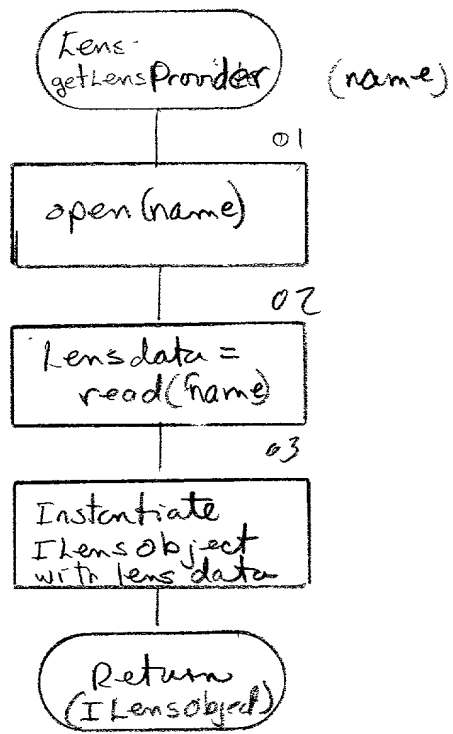 Lens-
getLensProvider (name)
01
open(name)
02
Lensdata =
read(name)
03
Instantiate
ILensObject
with lens data
Return
(ILensObject)